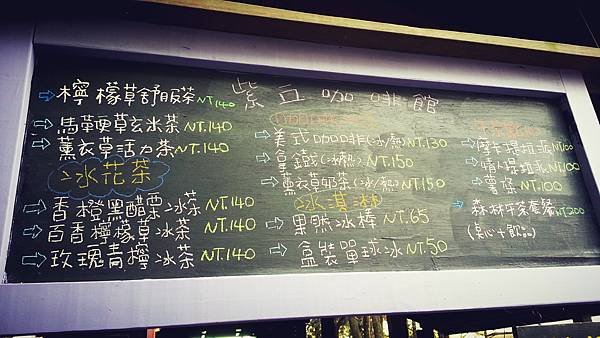 紫豆咖啡館
檸檬草舒服茶NT.140
馬鞭草玄米茶NT.140
薰衣草活力茶NT.140
冰花茶
香橙黑醋栗冰茶NT.140
百香檸檬草冰茶NT.140
玫瑰青檸冰茶NT.140
美式咖啡(冰/熱)NT.130
拿鐵(冰/熱)NT.150
薰衣草奶茶(冰/熱)NT.150
冰淇淋
果然冰棒NT.65
盒裝單球冰NT.50
摩卡提拉派NT.100
情人提拉派NT.100
薯條NT.100
森林午茶套餐NT.200
(點心+飲品)